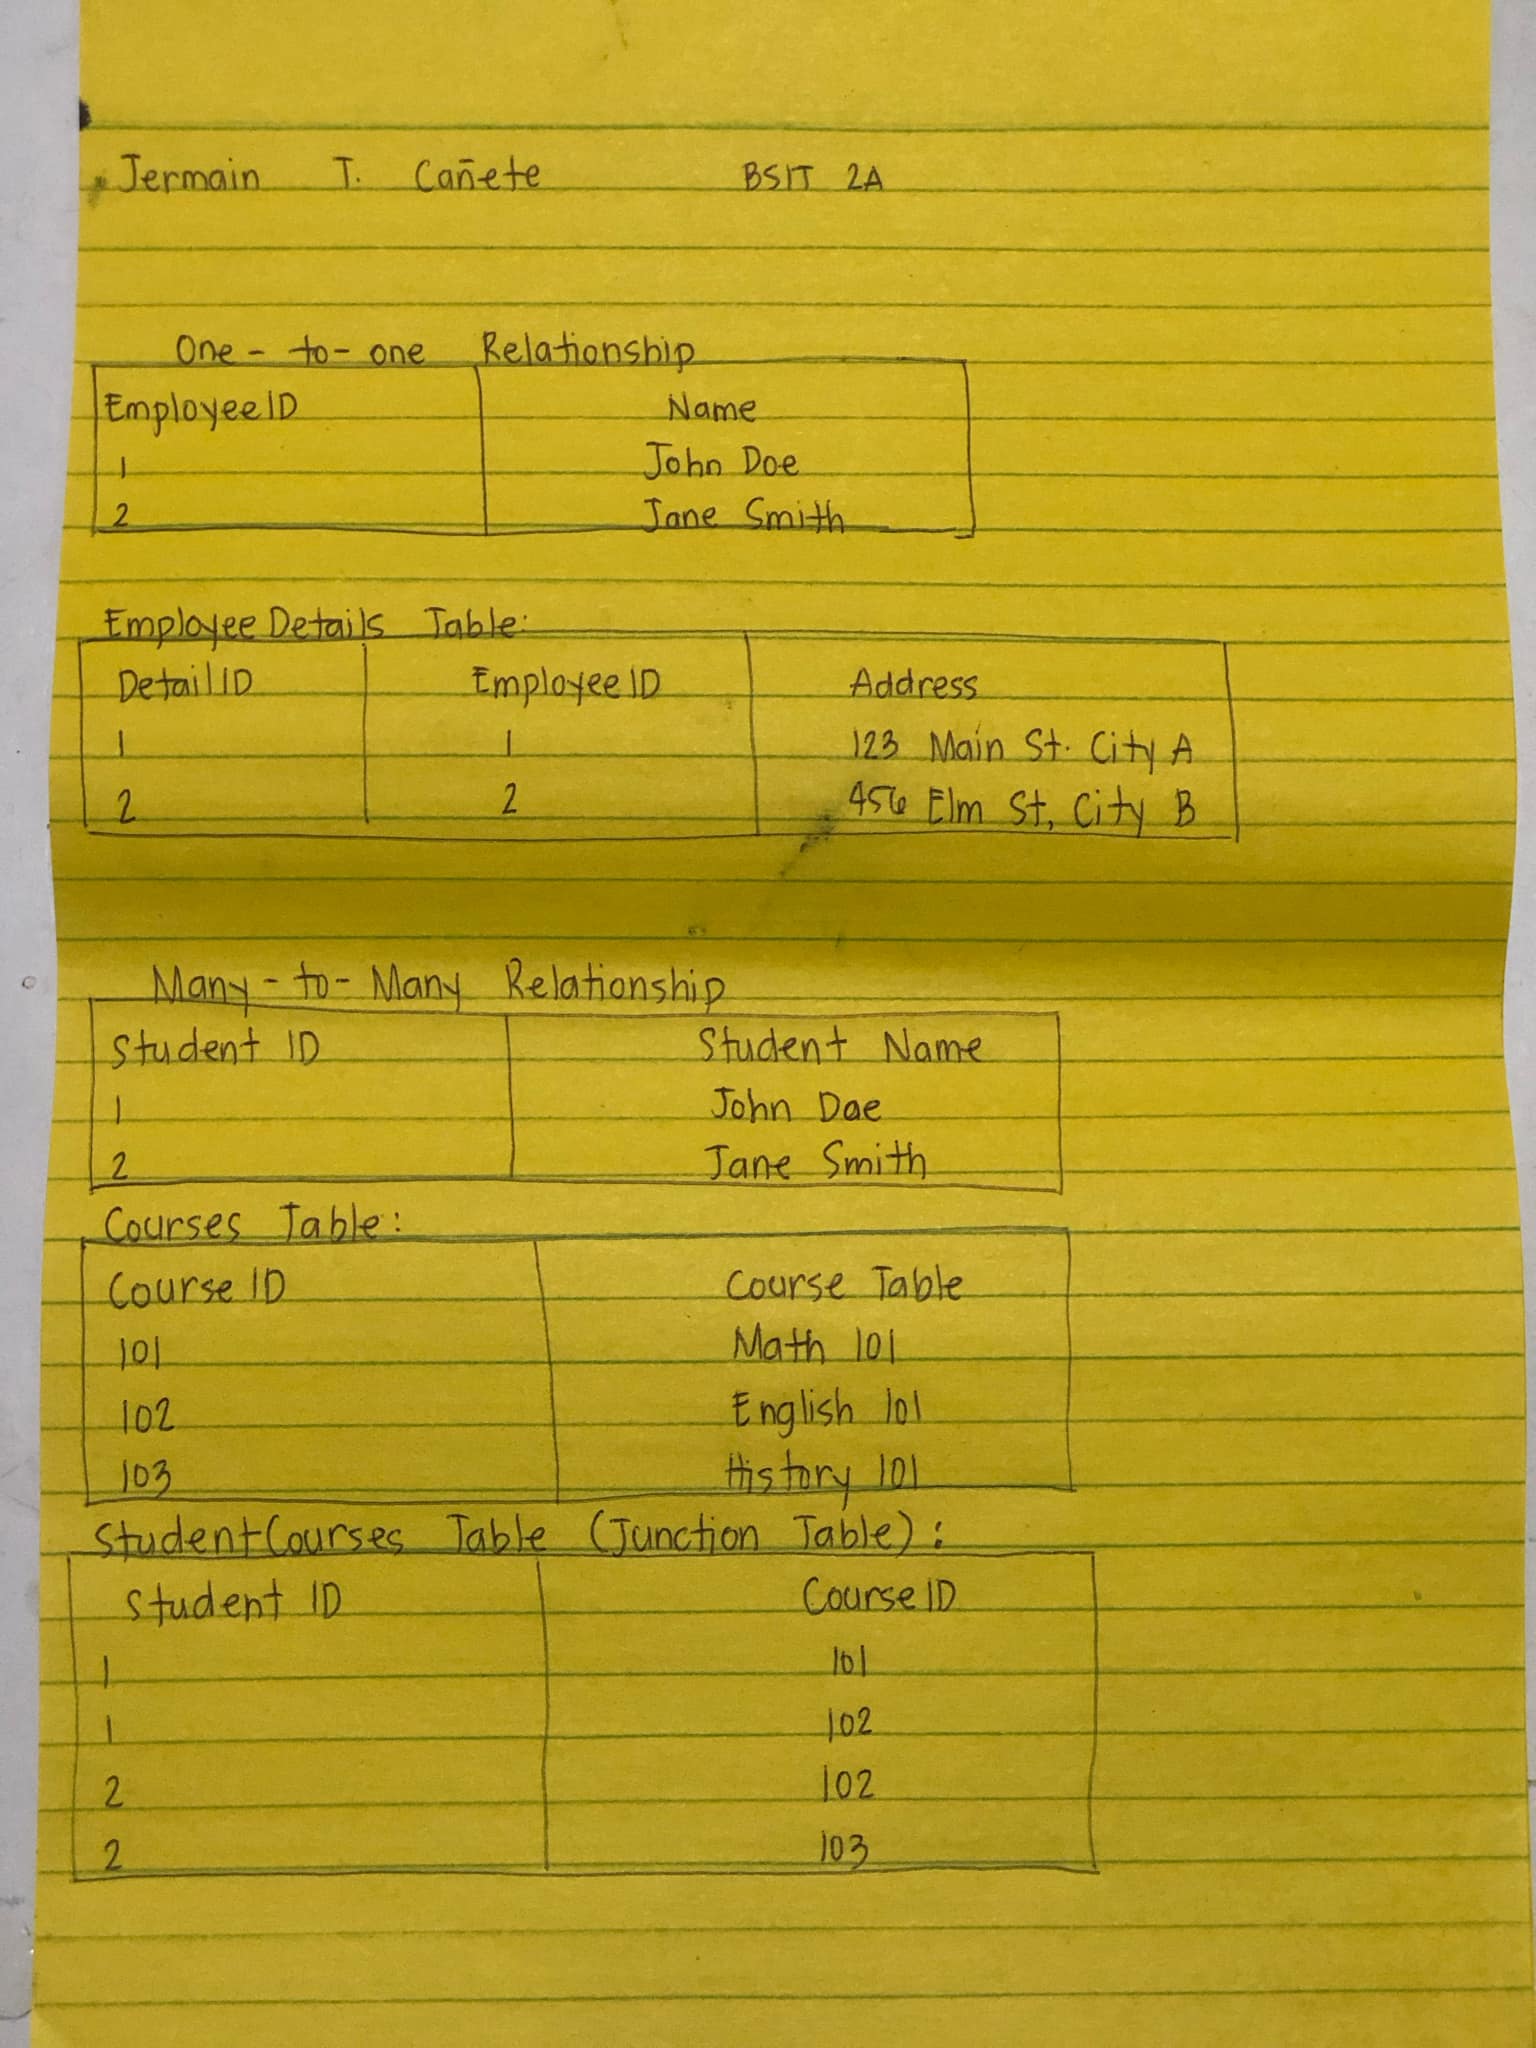 Jermain T. Cañete BSIT 2A
One - to - one Relationship
EmployeeID Name
1 John Doe
2 Jane Smith
EmployeeDetails Table:
DetailID EmployeeID Address
1 1 123 Main St. City A
2 2 456 Elm St, City B
Many - to - Many Relationship
Student ID Student Name
1 John Dae
2 Jane Smith
Courses Table:
Course ID Course Table
101 Math 101
102 English 101
103 History 101
StudentCourses Table (Junction Table) :
Student ID CourseID
1 101
1 102
2 102
2 103